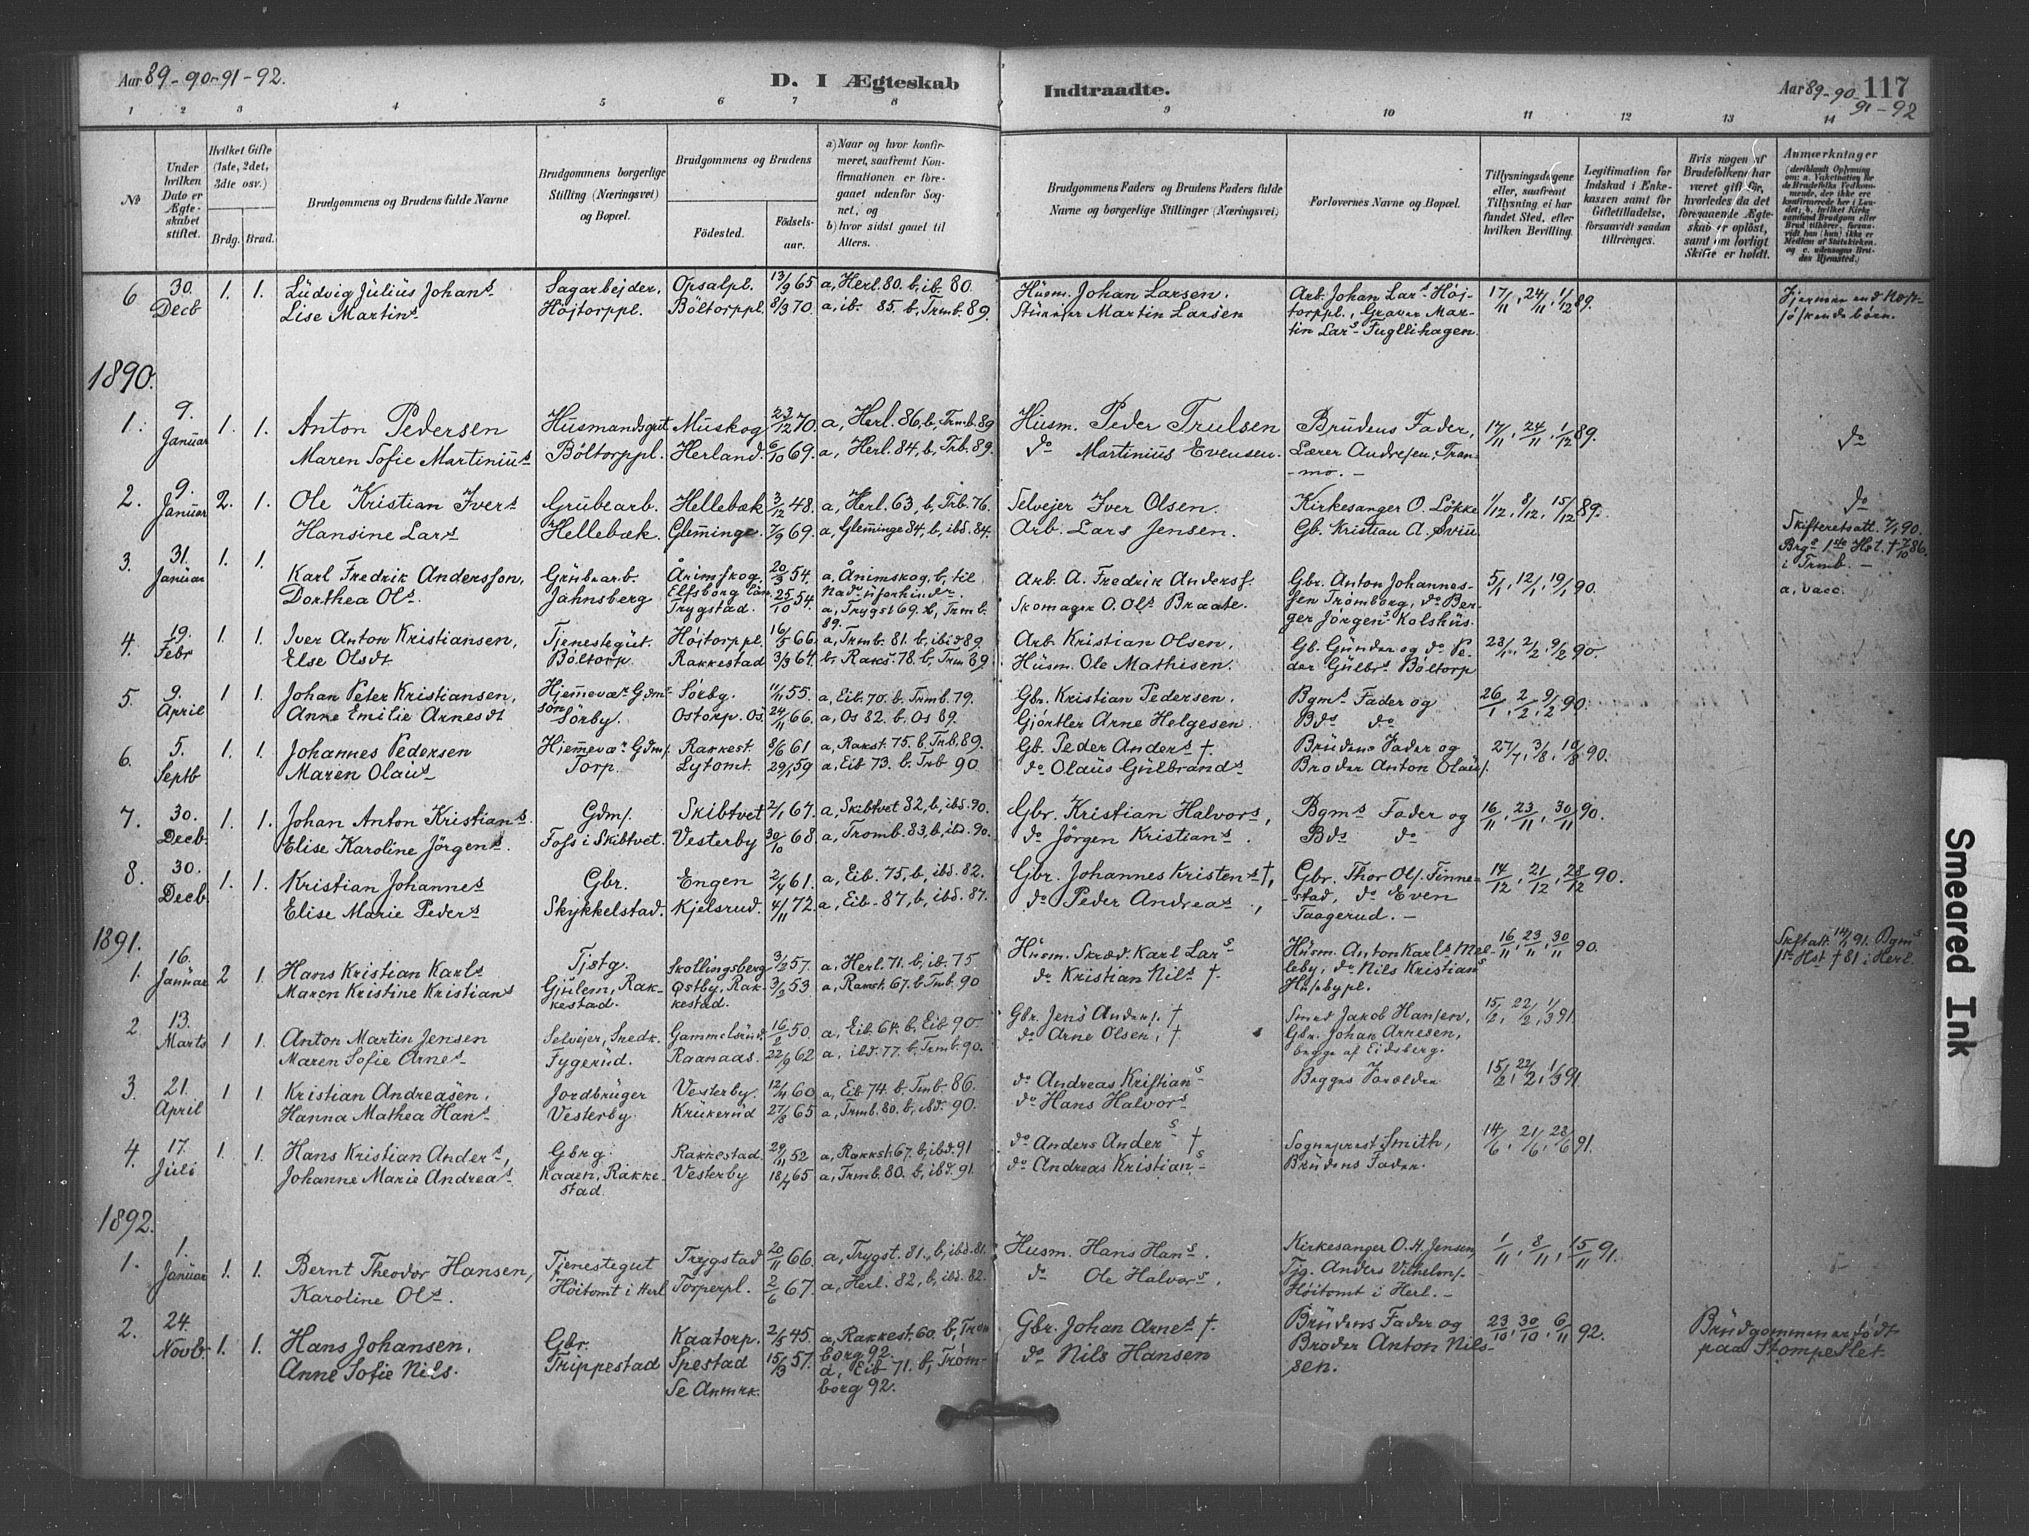 Aar 89-90-91-92.
D. I Ægteskab Indtraadte.
Aar 89-90- 117
91-92
1 2 3 4 5 6 7 8 9 10 11 12 13 14
No
Under hvilken Dato er Ægteskabet stiftet.
Hvilket Gifte (1ste, 2det, 3die osv.)
Brdg. Brud.
Brudgommens og Brudens fulde Navne
Brudgommens borgerlige Stilling (Næringsvei) og Bopæl.
Brudgommens og Brudens
Fødested.
Fødselsaar.
a) Naar og hvor konfirmeret, saafremt Konfirmationen er foregaaet udenfor Sognet, og
b) hvor sidst gaaet til Alters.
Brudgommens Faders og Brudens Faders fulde Navne og borgerlige Stillinger (Næringsvei)
Forlovernes Navne og Bopæl.
Tillysningsdagene eller, saafremt Tillysning ei har fundet Sted, efter hvilken Bevilling.
Legitimation for Indskud i Enkekassen samt for Giftetilladelse, forsaavidt saadan tiltrænges.
Hvis nogen af Brudefolkene har været gift før, hvorledes da det foregaaende Ægteskab er opløst, samt om lovligt Skifte er holdt.
Anmærkninger
6 30. Decb 1. 1. Ludvig Julius Johans Sagarbejder, Opsalpl. 13/9 65 a, Herl. 80. b, ib. 80. Husm. Johan Larsen. Arb. Johan Lars Høj- 17/11, 24/11, 1/12 89.
Lise Martins Højtorppl. Böltorppl. 8/3 70. a, ib. 85. b, Trmb. 89. Martin Larsen torppl., Graver Mar-
tin Lars Fugllihagen.
1890.
1. 9. Januar 1. 1. Anton Pedersen Husmandsgut Muskog 23/12 70. a, Herl. 86, b, Trmb. 89 Husm. Peder Trulsen Brudens Fader, 17/11, 24/11, 1/12 89. do
Maren Sofie Martinius Böltorppl. Herland. 6/10 69. a, Herl. 84, b, Trb. 89. do Martinius Evensen. Lærer Andresen, Tran-
mo. -
2. 9. Januar 2. 1. Ole Kristian Ivers Grubearb. Hellebæk 3/12 48. a, Herl. 63, b, Trb. 76. Selvejer Iver Olsen. Kirkesanger O. Lökke 1/12, 8/12, 15/12 89. do
Hansine Lars Hellebæk. Glemminge 7/9 69. a, Glemminge 84, b, ibd. 84. Arb. Lars Jensen. Gb. Kristian A. Sviu Skifteretsatt. 7/1 90.
Brgs 1ste Hst. † 7/10 86.
i Trmb. -
3. 31. Januar 1. 1. Karl Fredrik Andersson, Grubearb. Ånimskog, 20/3 54. a, Ånimskog, b, til Arb. A. Fredrik Anders. Gbr. Anton Johannes- 5/1, 12/1, 19/1 90. a, vacc.
Dorthea Ols. Jahnsberg Elfsborg Län Nadv. uforhindr.
Trygstad. 25/10 54. a, Trygst 69. b, Trmb. 89. Skomager O. Ols Braate. sen Trömborg, do Ber-
ger Jörgens Kolshus.
4. 19. Febr 1. 1. Iver Anton Kristiansen, Tjenestegut. Højtorppl. 16/5 66. a, Trmb. 81. b, ibid 89. Arb. Kristian Olsen. Gb. Gunder og do Pe- 28/1, 2/2, 9/2 90.
Else Olsdt Böltorp Rakkestad 3/3 64. b. Raks. 78. b, Trm 89. Husm. Ole Mathisen. der Gulbrs Böltorp
5 9. April 1 1. Johan Peter Kristiansen, Hjemmevær Gdms- Sörby. 11/11 55. a, Eib. 70. b. Trmb. 79. Gbr. Kristian Pedersen. Bgms Fader og 26/1, 2/2, 9/2 90.
Anne Emilie Arnesdt sön Sörby. Ostorp. Os. 24/11 66. a, Os 82. b, Os 89. Gjörtler Arne Helgesen. Bds do
6. 5. Septb 1. 1. Johannes Pedersen Hjemmevær Gdms. Rakkest. 8/6 61 a, Rakst. 75. b, Trb. 89. Gb. Peder Anders †. Brudens Fader og 27/7, 3/8, 10/8 90.
Maren Olaus Torp. Lytomt. 29/1 59 a, Eib 73. b, Trb 90 do Olaus Gulbrands Broder Anton Olaus.
7. 30. Decb. 1. 1. Johan Anton Kristians. Gdms. Skibtvet 2/1 67. a, Skibtvet 82, b, ibd. 90. Gbr. Kristian Halvors, Bgms Fader og 16/11, 23/11, 30/11 90.
Elise Karoline Jörgens. Foss i Skibtvet. Vesterby 30/10 68 a, Tromb. 83, b, ibd. 90. do Jörgen Kristians. Bds do
8. 30. Decb. 1. 1. Kristian Johannes Gbr. Engen 2/4 61. a, Eib. 75, b, ibd. 82. Gbr. Johannes Kristens †, Gbr. Thor Ols. Finne- 14/12, 21/12, 28/12 90.
Elise Marie Peders Skykkelstad. Kjelsrud. 4/11 72. a, Eib. 87, b, ibd. 87. do Peder Andreas, stad, do Even
Taagerud. -
1891.
1. 16. Januar 2 1. Hans Kristian Karls Tjstg. Skollingsberg 3/2 57. a, Herl. 71. b, ib. 75 Husm. Skræd. Karl Lars Husm. Anton Karls Mel- 16/11, 23/11, 30/11 90. Skftatt. 14/1 91. Bgms
Maren Kristine Kristians Gjulem, Rak- Østby, Rak- 3/2 53. a, Ramst. 67. b, Tmb. 90 do Kristian Nils † leby, do Nils Kristians 1ste Hst † 81 i Herl.
kestad. kestad. Husebypl.
2. 13. Marts 1 1. Anton Martin Jensen Selvejer, Snedk. Gammelsrud 16/2 50 a, Eib. 64. b, Eib 90 Gbr. Jens Anders. † Smed Jakob Hansen, 15/2, 22/2, 1/3 91
Maren Sofie Arnes Tygerud. Raanaas. 22/9 62 a, ibd. 77. b, Trmb. 90. do Arne Olsen, † Gbr. Johan Arnesen,
begge af Eidsberg.
3. 21. April 1 1. Kristian Andreasen, Jordbruger Vesterby. 12/4 60 a, Eib 74. b, Tmb. 86. do Andreas Kristians Begges Forældre 15/2, 22/2, 1/3 91.
Hanna Mathea Hans Vesterby. Krukerud 27/8 65 a, Trmb. 80. b, ibd. 90. do Hans Halvors
4. 17. Juli 1 1. Hans Kristian Anders, Gbrg. Rakkestad. 29/11 52 a, Rakkst. 67. b, ibd. 91 do Anders Anders † Sogneprest Smith, 14/6, 21/6, 28/6 91.
Johanne Marie Andreas. Kaaen, Rakke- Vesterby 18/7 65 a, Trmb. 80. b, ibd. 91. do Andreas Kristians Brudens Fader.
stad.
1892.
1. 1. Januar 1. 1. Bernt Theodor Hansen, Tjenestegut Trygstad 20/11 66. a, Trygst. 81. b, ibd. 81. Husm. Hans Hans. Kirkesanger O. H. Jensen 1/11, 8/11, 15/11 91.
Karoline Ols. Höitomt i Herl Torperpl. 2/6 67. a, Herl. 82, b, ibd. 82. do Ole Halvors, Tjg. Anders Vilhelms.
Höitomt i Herl. -
2. 24. Novb. 1. 1. Hans Johansen. Gbr. Kaatorp. 2/3 45. a, Rakkest. 60. b, Trøm Gbr. Johan Arnes †. Brudens Fader og 23/10, 30/10, 6/11 92. Brudgommen er født
Anne Sofie Nils. Trippestad Spestad 15/3 57. borg 92. do Nils Hansen Broder Anton Nils- paa Stompeslet
Se Anmrk. a, Eib 71. b, Trøm- sen.
borg 92.
Smeared Ink